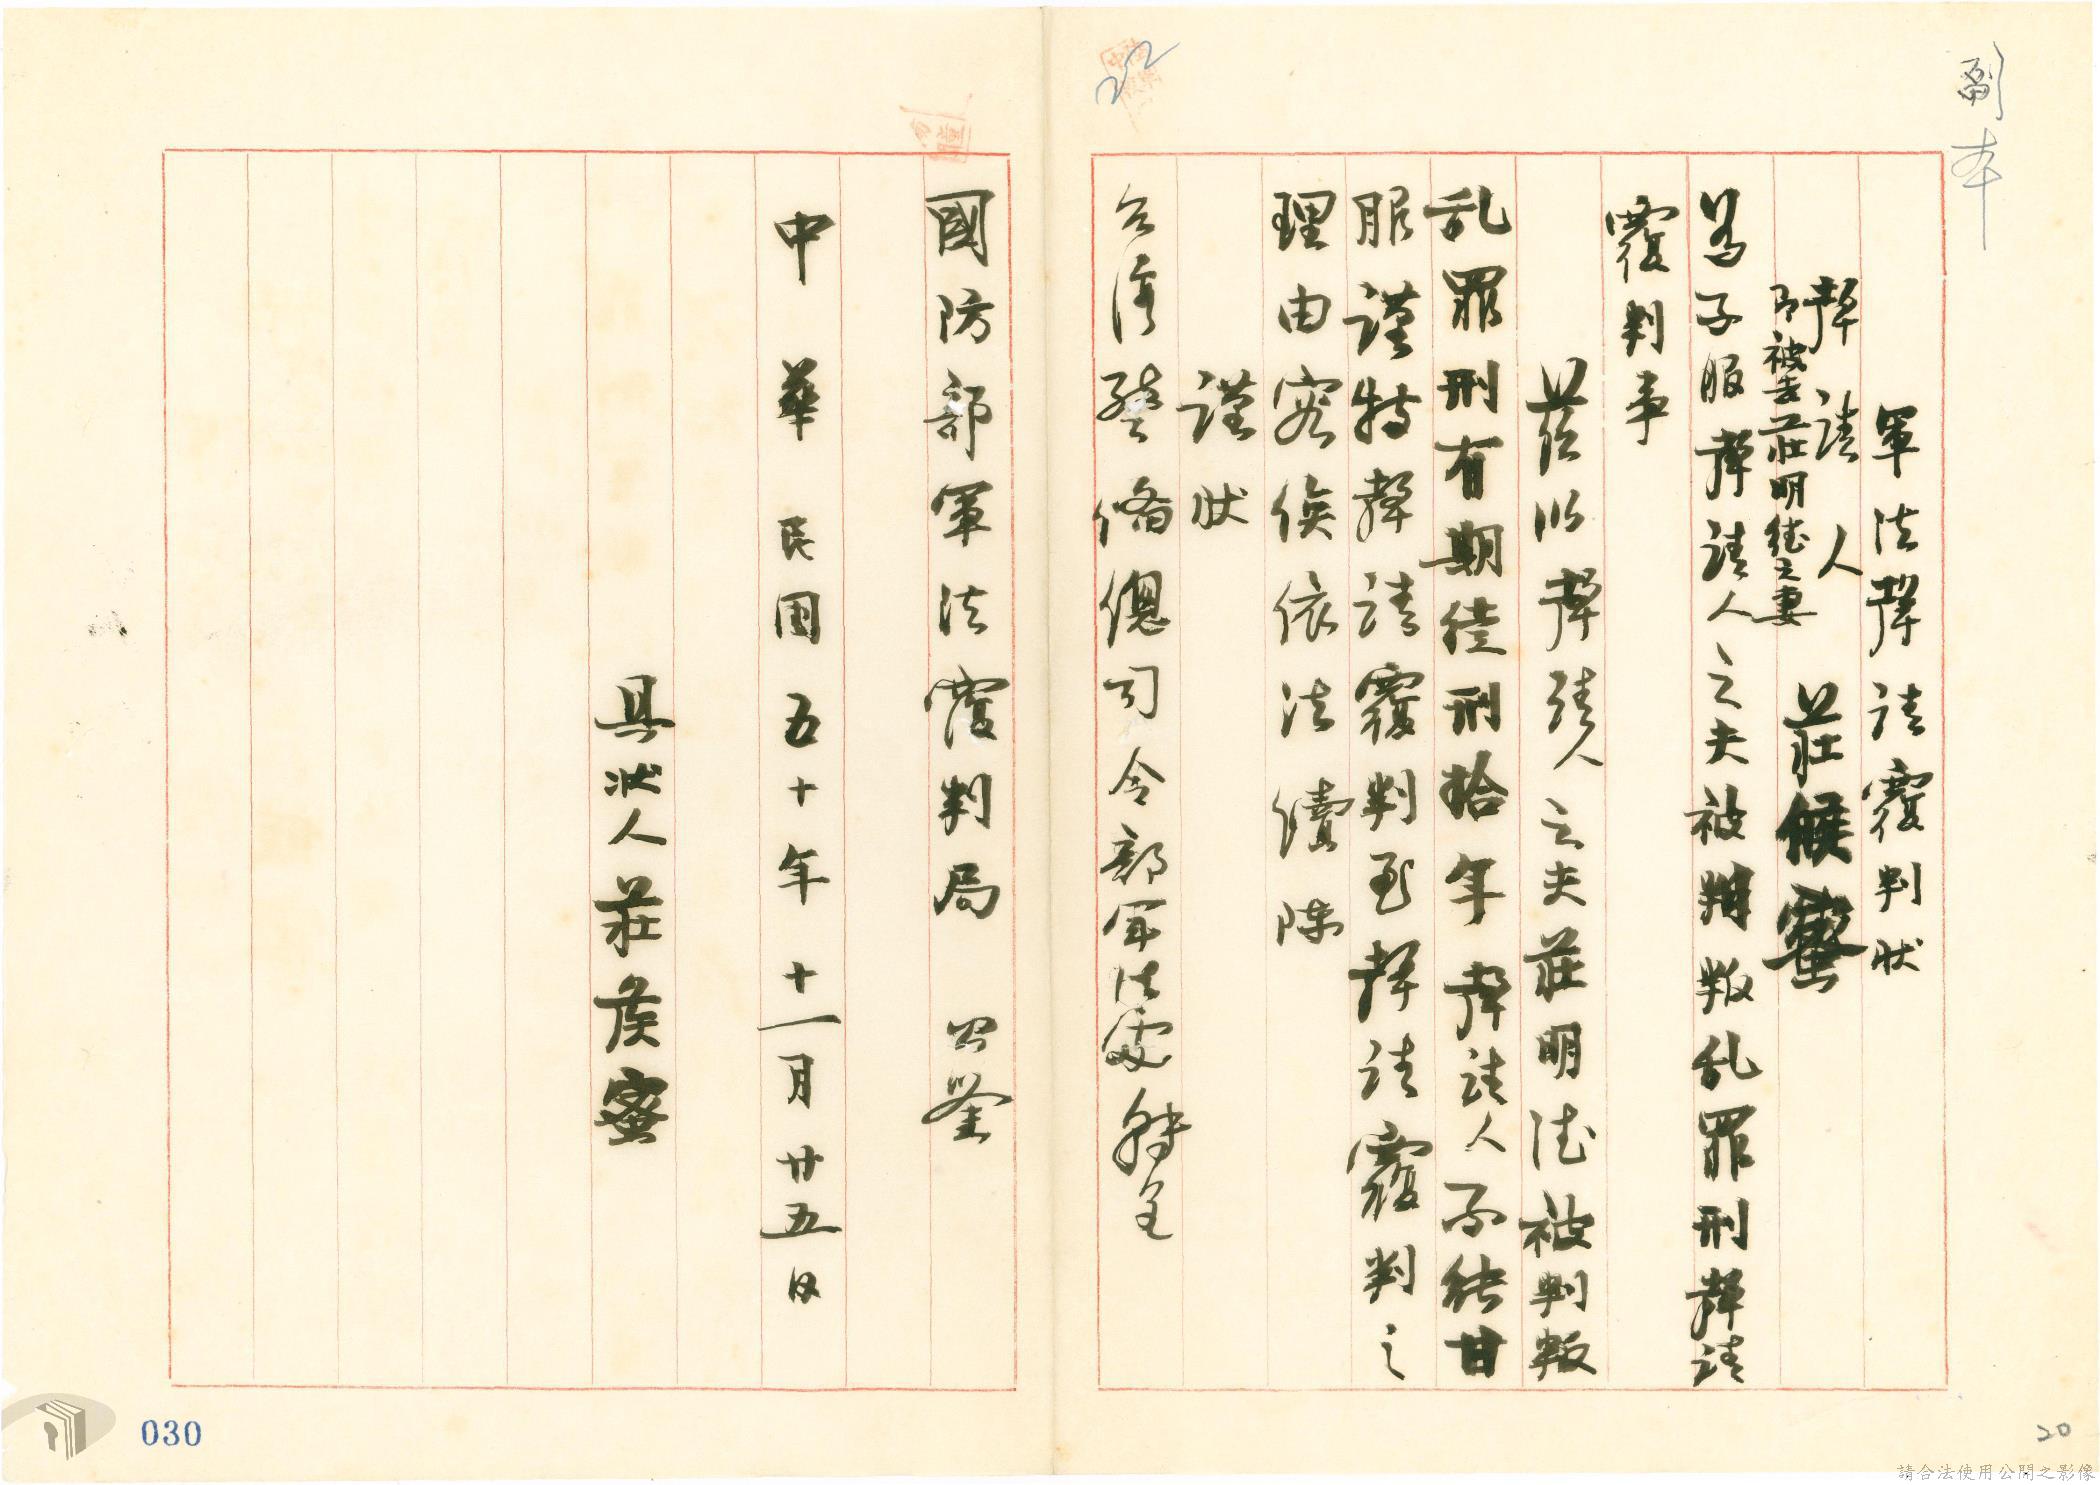 副本
軍法聲請覆判狀
聲請人 莊候蜜
即被告莊明德之妻
為不服聲請人之夫被判叛乱罪刑聲請
覆判事
茲以聲請人之夫莊明德被判叛
乱罪刑有期徒刑拾年聲請人不能甘
服謹特聲請覆判至聲請覆判之
理由容俟依法續陳
謹狀
台湾警備總司令部軍法處轉呈
國防部軍法覆判局 公鑒
中華民國五十年十一月廿五日
具狀人莊侯蜜
22
030
20
請合法使用公開之影像